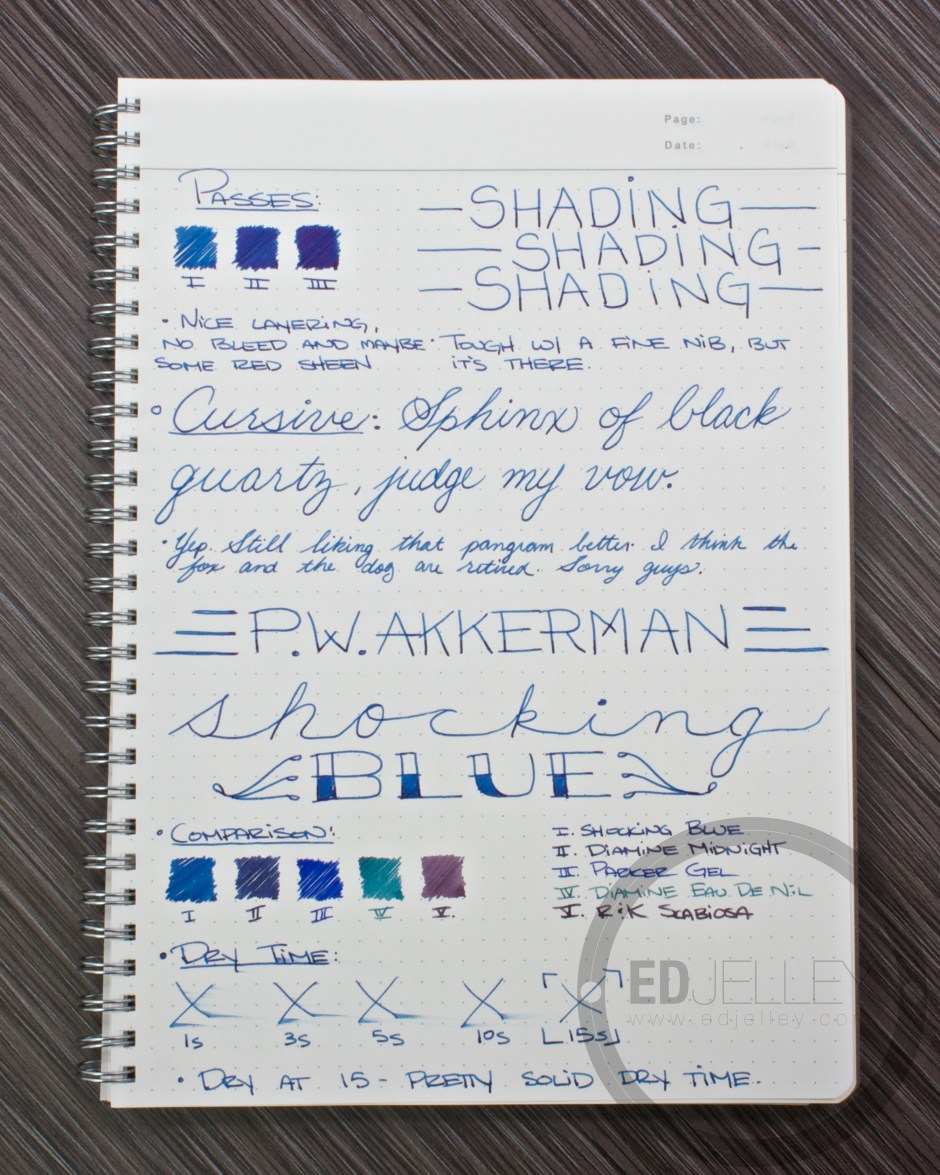 Page:
Date: . .
PASSES:
I II III
—SHADING—
—SHADING—
—SHADING—
• NICE LAYERING,
NO BLEED AND MAYBE
SOME RED SHEEN
• TOUGH W/ A FINE NIB, BUT
IT'S THERE.
Cursive: Sphinx of black
quartz, judge my vow.
• Yep. Still liking that pangram better. I think the
fox and the dog are retired. Sorry guys.
P.W. AKKERMAN
shocking
BLUE
• COMPARISON:
I II III IV V.
I. SHOCKING BLUE
II. DIAMINE MIDNIGHT
III. PARKER GEL
IV DIAMINE EAU DE NIL
V. R:K SCABIOSA
• DRY TIME:
X X X X X
1s 3s 5s 10s 15s
• DRY AT 15 - PRETTY SOLID DRY TIME.
ED JELLEY
www.edjelley.co